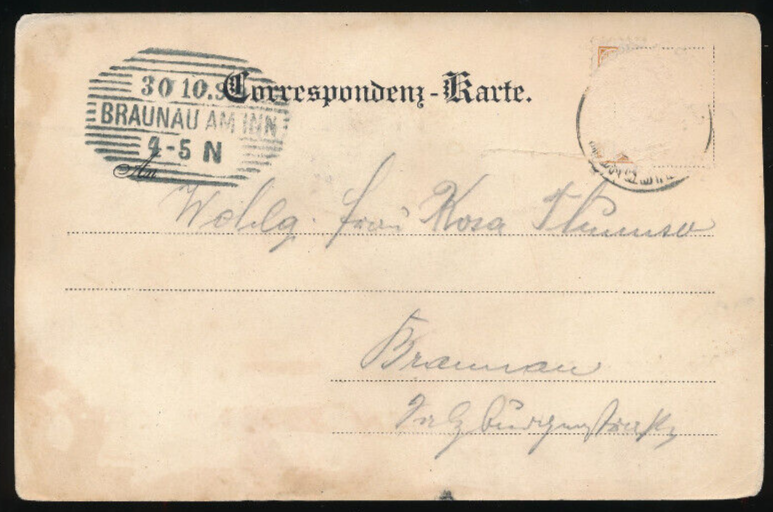 30 10.9
BRAUNAU AM INN
4-5 N
Correspondenz-Karte.
An
Wohlg. Frau Rosa
Braunau
Salzburgerstraße